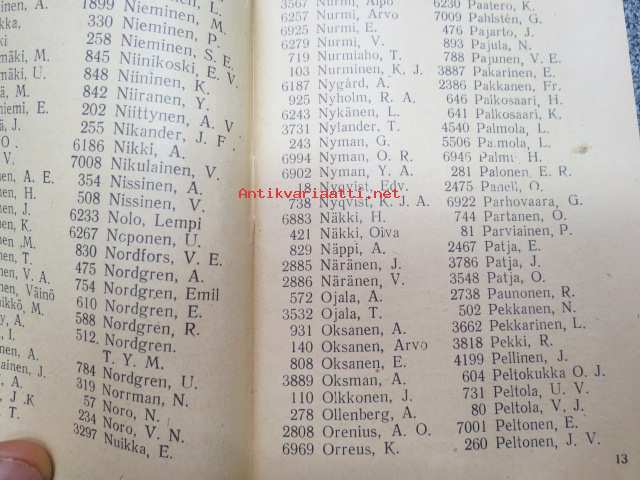 mäki
kka,
ki
mäki, U.
M.
niemi, E.
J.
O.
V.
nen, A. E.
nen, H.
nen, J.
nen, K.
nen, M.
nen, T.
nen, V. A.
nen, Väinö
M.
A.
I.
nen, A.
ainen, J.
A.
J. K
T.
1899 Nieminen, L.
330 Nieminen, M.
258 Nieminen, P.
845 Nieminen, S. E.
845 Niinikoski, E. V.
848 Niininen, K.
842 Niiranen, Y.
202 Niittynen, A. V.
255 Nikander, J. F.
6186 Nikki, A.
7008 Nikulainen, V.
354 Nissinen, A.
508 Nissinen, V.
6233 Nolo, Lempi
6267 Noponen, U.
830 Nordfors, V. E.
475 Nordgren, A.
754 Nordgren, Emil
610 Nordgren, E.
588 Nordgren, R.
512. Nordgren.
T. Y. M.
784 Nordgren, U.
319 Norrman, N.
57 Noro, N.
234 Noro, V. N.
3297 Nuikka, E.
3567 Nurmi, Alpo
6257 Nurmi, Arvo
6925 Nurmi, E.
6279 Nurmi, V.
719 Nurmiaho, T.
103 Nurminen, K. J.
6187 Nygård, A.
925 Nyholm, R. A.
6243 Nykänen, L.
3731 Nylander, T.
243 Nyman, G.
6994 Nyman, O. R.
6902 Nyman, Y. A.
18 Nyqvist, Edv.
738 Nyqvist, K. J. A.
6883 Näkki, H.
421 Näkki, Oiva
829 Näppi, A.
2885 Näränen, J.
2886 Näränen, V.
572 Ojala, A.
3532 Ojala, T.
931 Oksanen, A.
140 Oksanen, Arvo
808 Oksanen, E.
3889 Oksman, A.
110 Olkkonen, J.
278 Ollenberg, A.
2808 Orenius, A. O.
6969 Orreus, K.
6230 Paatero, K.
7009 Pahlstén, G.
476 Pajarto, J.
893 Pajula, N.
788 Pajunen, V. E.
3887 Pakarinen, E.
2386 Pakkanen, Fr.
646 Palkosaari, H.
641 Palkosaari, K.
4540 Palmola, L.
5506 Palmola, L.
6946 Palmu, H.
281 Palonen, E. R.
2475 Paneli, O.
6922 Parhovaara, G.
744 Partanen, O.
81 Parviainen, P.
2467 Patja, E.
3786 Patja, J.
3548 Patja, O.
2738 Paunonen, R.
502 Pekkanen, N.
3662 Pekkarinen, L.
3818 Pekki, R.
4199 Pellinen, J.
604 Peltokukka O. J.
731 Peltola, U. V.
80 Peltola, V. J.
7001 Peltonen, E.
260 Peltonen, J. V.
13
Antikvariaatti.net